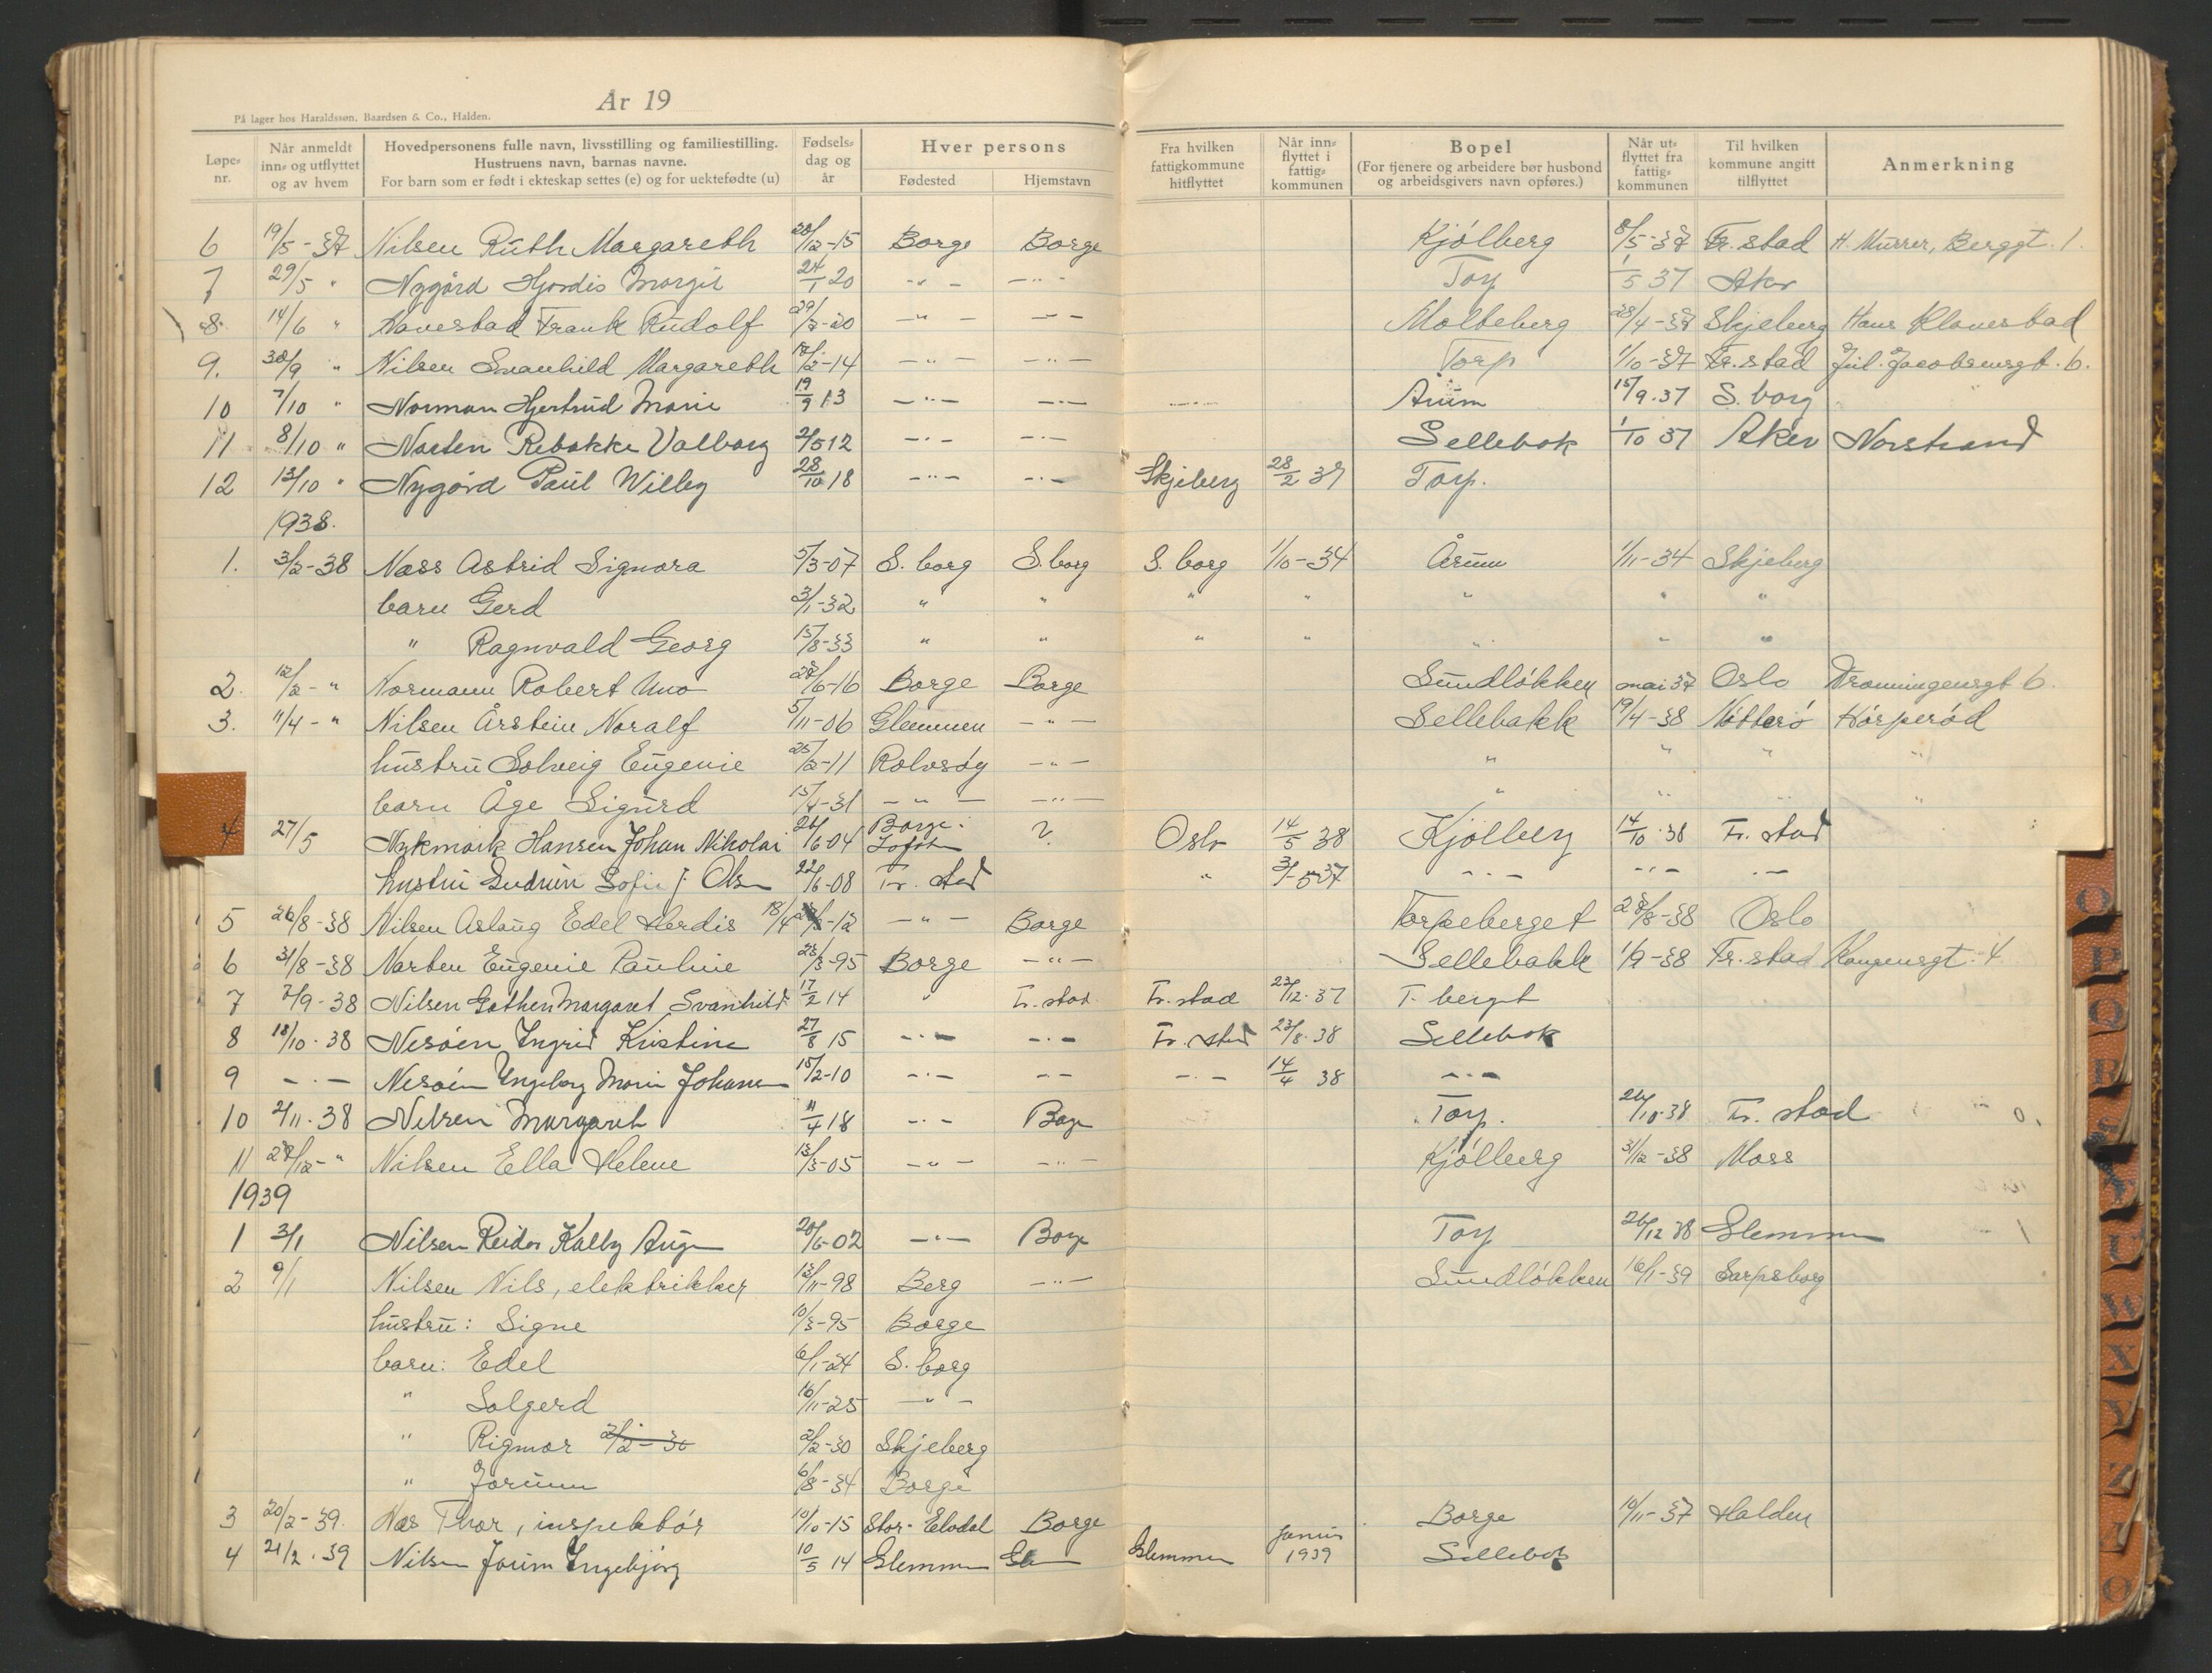 År 19
På lager hos Haraldssøn, Baardsen & Co., Halden.
Løpe-nr. Når anmeldt inn- og utflyttet og av hvem Hovedpersonens fulle navn, livsstilling og familiestilling. Hustruens navn, barnas navne. For barn som er født i ekteskap settes (e) og for uektefødte (u) Fødsels-dag og år Hver persons Fødested Hjemstavn Fra hvilken fattigkommune hitflyttet Når inn-flyttet i fattig-kommunen Bopel (For tjenere og arbeidere bør husbond og arbeidsgivers navn opføres.) Når ut-flyttet fra fattig-kommunen Til hvilken kommune angitt tilflyttet Anmerkning
6 19/5-37 Nilsen Ruth Margareth 20/12-15 Borge Borge Kjølberg 8/5-37 Fr.stad H. Murrer, Berggt. 1.
7 29/5 " Nygård Hjordis Margit 24/1 20 -"- -"- Torp 1/5 37 Aker
8 14/6 " Navestad Frank Rudolf 29/3-20 -"- -"- Molteberg 28/4-37 Skjeberg Hans Klavestad
9. 30/9 " Nilsen Svanhild Margareth 18/2-14 -"- -"- Torp 1/10-37 Fr.stad Jul. Jacobsensgt. 6.
10 7/10 " Norman Hjertrud Marie 19/9 13 -"- -"- Årum 15/9.37 S.borg
11 8/10 " Narten Rebekke Valborg 2/5 12 -"- -"- Sellebak 1/10 37 Aker Norstrand
12 13/10 " Nygård Paul Willy 28/10 18 -"- -"- Skjeberg 28/2 37 Torp.
1938.
1. 3/2-38 Næss Astrid Signora 5/3-07 S.borg S.borg S.borg 1/10-34 Årum 1/11-34 Skjeberg
barn Gerd 3/1-32 " " " " " " "
" Ragnvald Georg 15/8-33 " " " " " " "
2. 12/2-" Normann Robert Uno 28/6-16 Borge Borge Sundløkken mai 37 Oslo Dronningensgt 6.
3. 11/4-" Nilsen Årstein Noralf 5/11-06 Glemmen -"- Sellebakk 19/4-38 Nøtterø Hårperød
hustru Solveig Eugenie 25/2-11 Rolvsøy -"- " " " "
barn Åge Sigurd 15/4-31 -"- -"- " " " "
4 27/5 Nykmark Hansen Johan Nikolai 26/6 04 Borge i Lofoten ? Oslo 14/5 38 Kjølberg 14/10.38 Fr. stad
hustru Gudrun Sofie f. Olsen 22/6-08 Fr. stad " 3/5 37 -"- -"- -"-
5 26/8-38 Nilsen Aslaug Edel Herdis 18/4-12 -"- Borge Torpeberget 28/8-38 Oslo
6 31/8-38 Narten Eugenie Pauline 23/3-95 Borge -"- Sellebakk 1/9-38 Fr.stad Kongensgt. 4
7 7/9-38 Nilsen Gathen Margaret Svanhild 17/2 14 " Fr.stad Fr.stad 23/12.37 T.berget
8 18/10.38 Nesøen Ingrid Kristine 27/8 15 -"- -"- Fr. stad 23/8.38 Sellebak
9 -"- Nesøen Ingeborg Marie Johanne 15/2-10 -"- -"- -"- 14/4 38 -"-
10 2/11.38 Nilsen Margareth 11/4 18 -"- Borge Torp. 26/10.38 Fr. stad
11 28/12-" Nilsen Ella Helene 13/3-05 -"- -"- Kjølberg 31/12-38 Moss
1939
1 3/1 Nilsen Reidar Kalby Aug 20/6-02 -"- Borge Torp 26/12 38 Glemmen
2 9/1 Nilsen Nils, elektrikker 13/11-98 Berg -"- Sundløkken 16/1-39 Sarpsborg
hustru: Signe 10/3-95 Borge
barn: Edel 6/1-24 S.borg
" Solgerd 16/11-25 -"-
" Rigmor 2/2-30 2/2-30 Skjeberg
" Jorunn 6/8-34 Borge
3 20/2-39. Næs Thor, inspektør 10/10-15 Stor-Elvdal Borge Borge 10/11-37 Halden
4 21/2.39 Nilsen Jorun Ingebjørg 10/5 14 Glemmen Glemmen 1939 Sellebak
O P Q R U W X Y Z Æ Ø